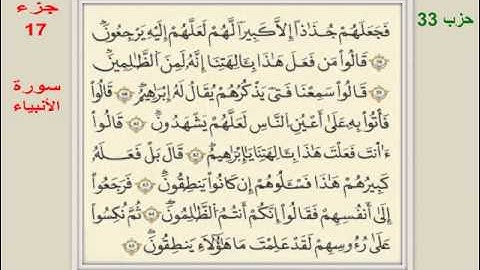 حزب 33
جزء
17
سورة
الأنبياء
فَجَعَلَهُمْ جُذَٰذًا إِلَّا كَبِيرًا لَّهُمْ لَعَلَّهُمْ إِلَيْهِ يَرْجِعُونَ
قَالُواْ مَن فَعَلَ هَٰذَا بِـَٔالِهَتِنَا إِنَّهُۥ لَمِنَ ٱلظَّٰلِمِينَ
قَالُواْ سَمِعْنَا فَتًى يَذْكُرُهُمْ يُقَالُ لَهُۥٓ إِبْرَٰهِيمُ قَالُواْ
فَأْتُواْ بِهِۦ عَلَىٰٓ أَعْيُنِ ٱلنَّاسِ لَعَلَّهُمْ يَشْهَدُونَ قَالُوٓاْ
ءَأَنتَ فَعَلْتَ هَٰذَا بِـَٔالِهَتِنَا يَٰٓإِبْرَٰهِيمُ قَالَ بَلْ فَعَلَهُۥ
كَبِيرُهُمْ هَٰذَا فَسْـَٔلُوهُمْ إِن كَانُواْ يَنطِقُونَ فَرَجَعُوٓاْ
إِلَىٰٓ أَنفُسِهِمْ فَقَالُوٓاْ إِنَّكُمْ أَنتُمُ ٱلظَّٰلِمُونَ ثُمَّ نُكِسُواْ
عَلَىٰ رُءُوسِهِمْ لَقَدْ عَلِمْتَ مَا هَٰٓؤُلَآءِ يَنطِقُونَ